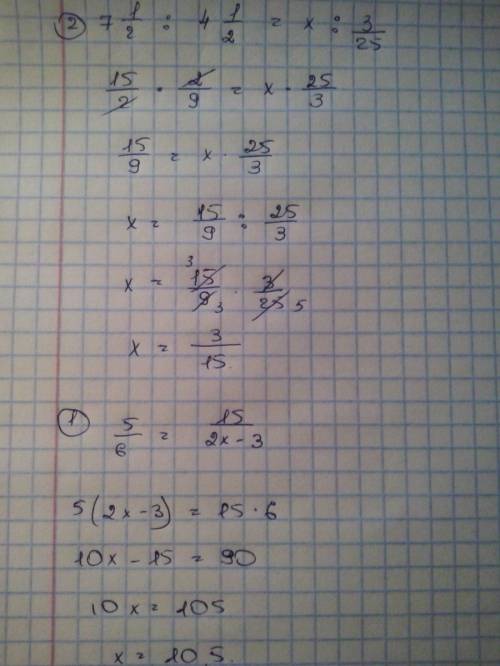 ② 7 1/2 : 4 1/2 = x : 3/25
15/2 · 2/9 = x · 25/3
15/9 = x · 25/3
x = 15/9 : 25/3
x = 3 15/9 3 · 3/25 5
x = 3/15.
① 5/6 = 15/2x-3
5(2x-3) = 15·6
10x-15 = 90
10x = 105
x = 10,5.